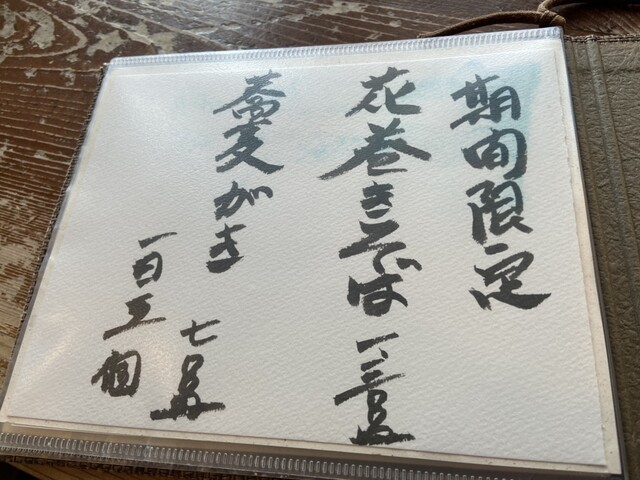 期間限定
花巻きそば 一、三
蕎麦がき 七
一日五個